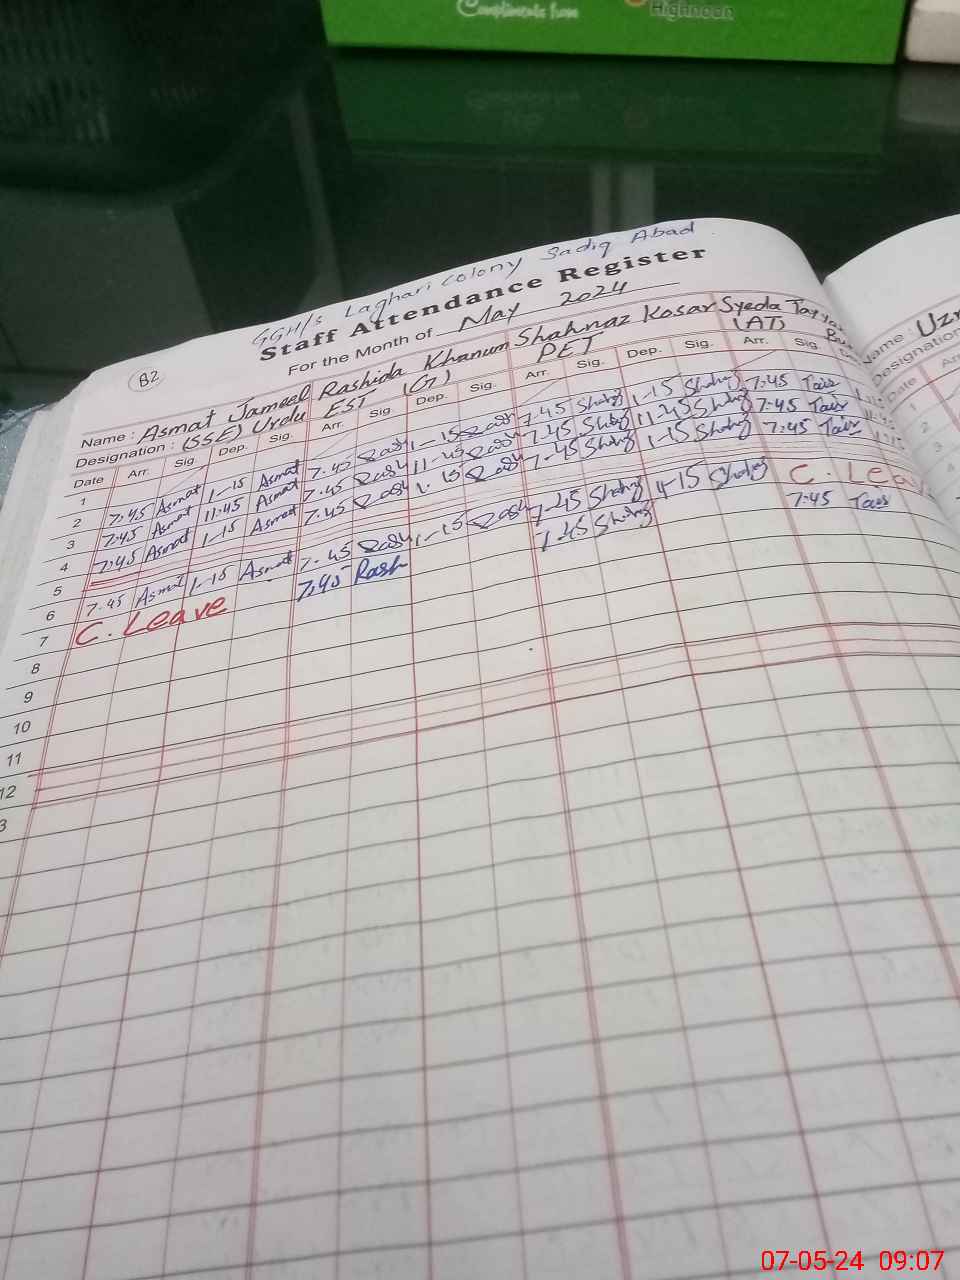 Compliments from Highnoon
GGH/s Laghari colony Sadiq Abad
Staff Attendance Register
For the Month of May 2024
82
Name : Asmat Jameel Rashida Khanum Shahnaz Kosar Syeda
Designation : (SSE) Urdu EST (G) PET (AT)
Date Arr. Sig. Dep. Sig. Arr. Sig. Dep. Sig. Arr. Sig. Dep. Sig. Arr. Sig.
1
2 7:45 Asmat 1-15 Asmat 7.45 Rash 1-15 Rash 7.45 Shahnz 1-15 Shahnz 7:45
3 7:45 Asmat 11:45 Asmat 7.45 Rash 11-45 Rash 7.45 Shahnz 11.45 Shahnz 7:45
4 7:45 Asmat 1-15 Asmat 7.45 Rash 1.15 Rash 7-45 Shahnz 1-15 Shahnz 7:45
5
6 7.45 Asmat 1-15 Asmat 7.45 Rash 1-15 Rash 7-45 Shahnz 1-15 Shahnz C. Leave
7 C. Leave 7.45 Rash 7.45 Shahnz 7:45
8
9
10
11
12
3
Name : Uzr
Designation
Date
1
2
3
4
07-05-24 09:07